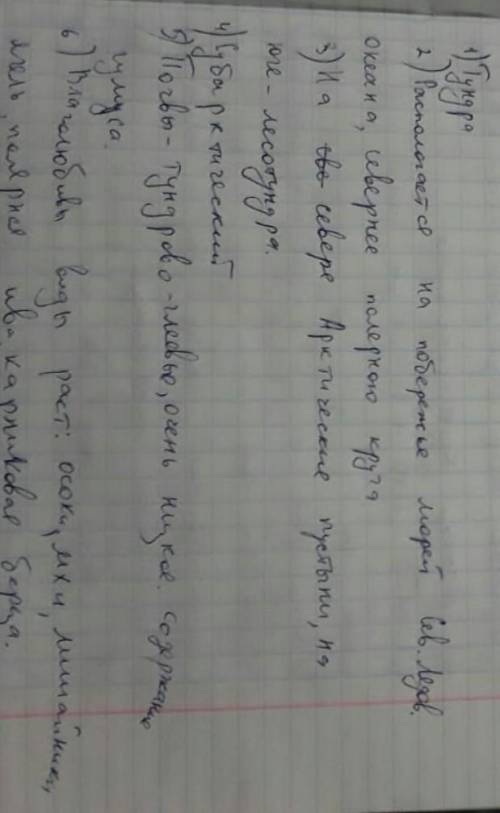 1) Тундра
2) Располагается на побережье морей Сев. Ледов.
океана, севернее полерного круга
3) На сево севере Арктические пустыни, на
юге - лесотундра.
4) Субарктический
5) Почвы - Тундрово-глеевые, очень низкое содержание
гумуса.
6) Влаголюбивы виды раст: осоки, мхи, лишайники,
полярная ива карликовая береза.